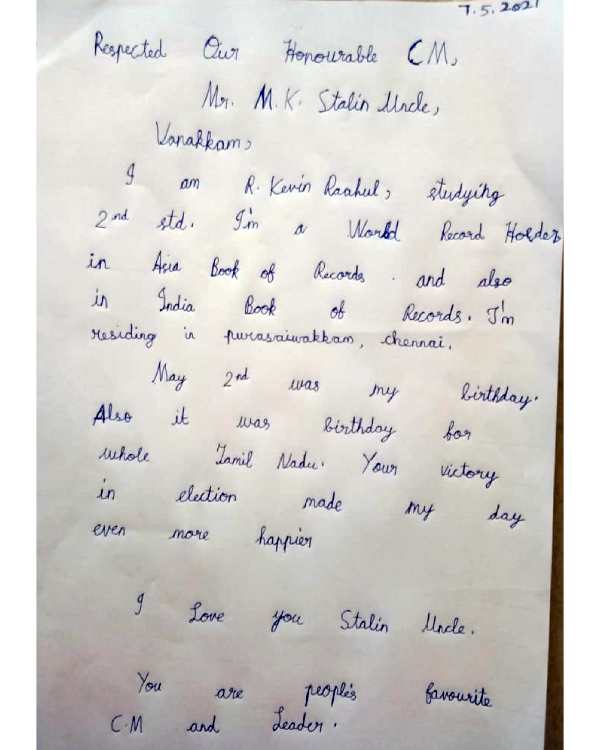 7.5.2021
Respected Our Honourable CM,
Mr. M.K. Stalin Uncle,
Vanakkam,
I am R. Kevin Raahul, studying
2nd std. I'm a World Record Holder
in Asia Book of Records. and also
in India Book of Records. I'm
residing in purasaiwakkam, chennai.
May 2nd was my birthday.
Also it was birthday for
whole Tamil Nadu. Your victory
in election made my day
even more happier
I Love you Stalin Uncle.
You are people's favourite
C.M and Leader.